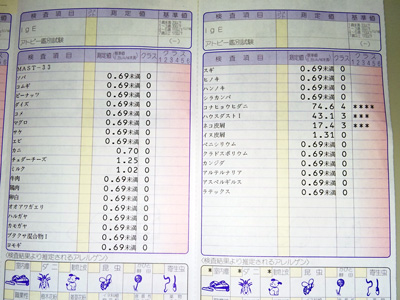 検査項目 測定値 基準値
IgE
アトピー鑑別試験 (-)
検査項目 測定値 クラス
1 2 3 4 5 6
MAST-33
ソバ 0.69未満 0
コムギ 0.69未満 0
ピーナッツ 0.69未満 0
ダイズ 0.69未満 0
コメ 0.69未満 0
マグロ 0.69未満 0
サケ 0.69未満 0
エビ 0.69未満 0
カニ 0.70 0
チェダーチーズ 1.25 0
ミルク 1.02 0
牛肉 0.69未満 0
鶏肉 0.69未満 0
卵白 0.69未満 0
オオアワガエリ 0.69未満 0
ハルガヤ 0.69未満 0
カモガヤ 0.69未満 0
ブタクサ混合物1 0.69未満 0
ヨモギ 0.69未満 0
(検査結果より推定されるアレルゲン)
室内塵 ダニ 動物 昆虫 寄生虫
検査項目 測定値 基準値
IgE
アトピー鑑別試験 (-)
検査項目 測定値 クラス
1 2 3 4 5 6
スギ 0.69未満 0
ヒノキ 0.69未満 0
ハンノキ 0.69未満 0
シラカンバ 0.69未満 0
コナヒョウヒダニ 74.6 4 ****
ハウスダスト1 43.1 3 ***
ネコ皮屑 17.4 3 ***
イヌ皮屑 1.31 0
ペニシリウム 0.69未満 0
クラドスポリウム 0.69未満 0
カンジダ 0.69未満 0
アルテルナリア 0.69未満 0
アスペルギルス 0.69未満 0
ラテックス 0.69未満 0
(検査結果より推定されるアレルゲン)
室内塵 ダニ 動物 昆虫 寄生虫